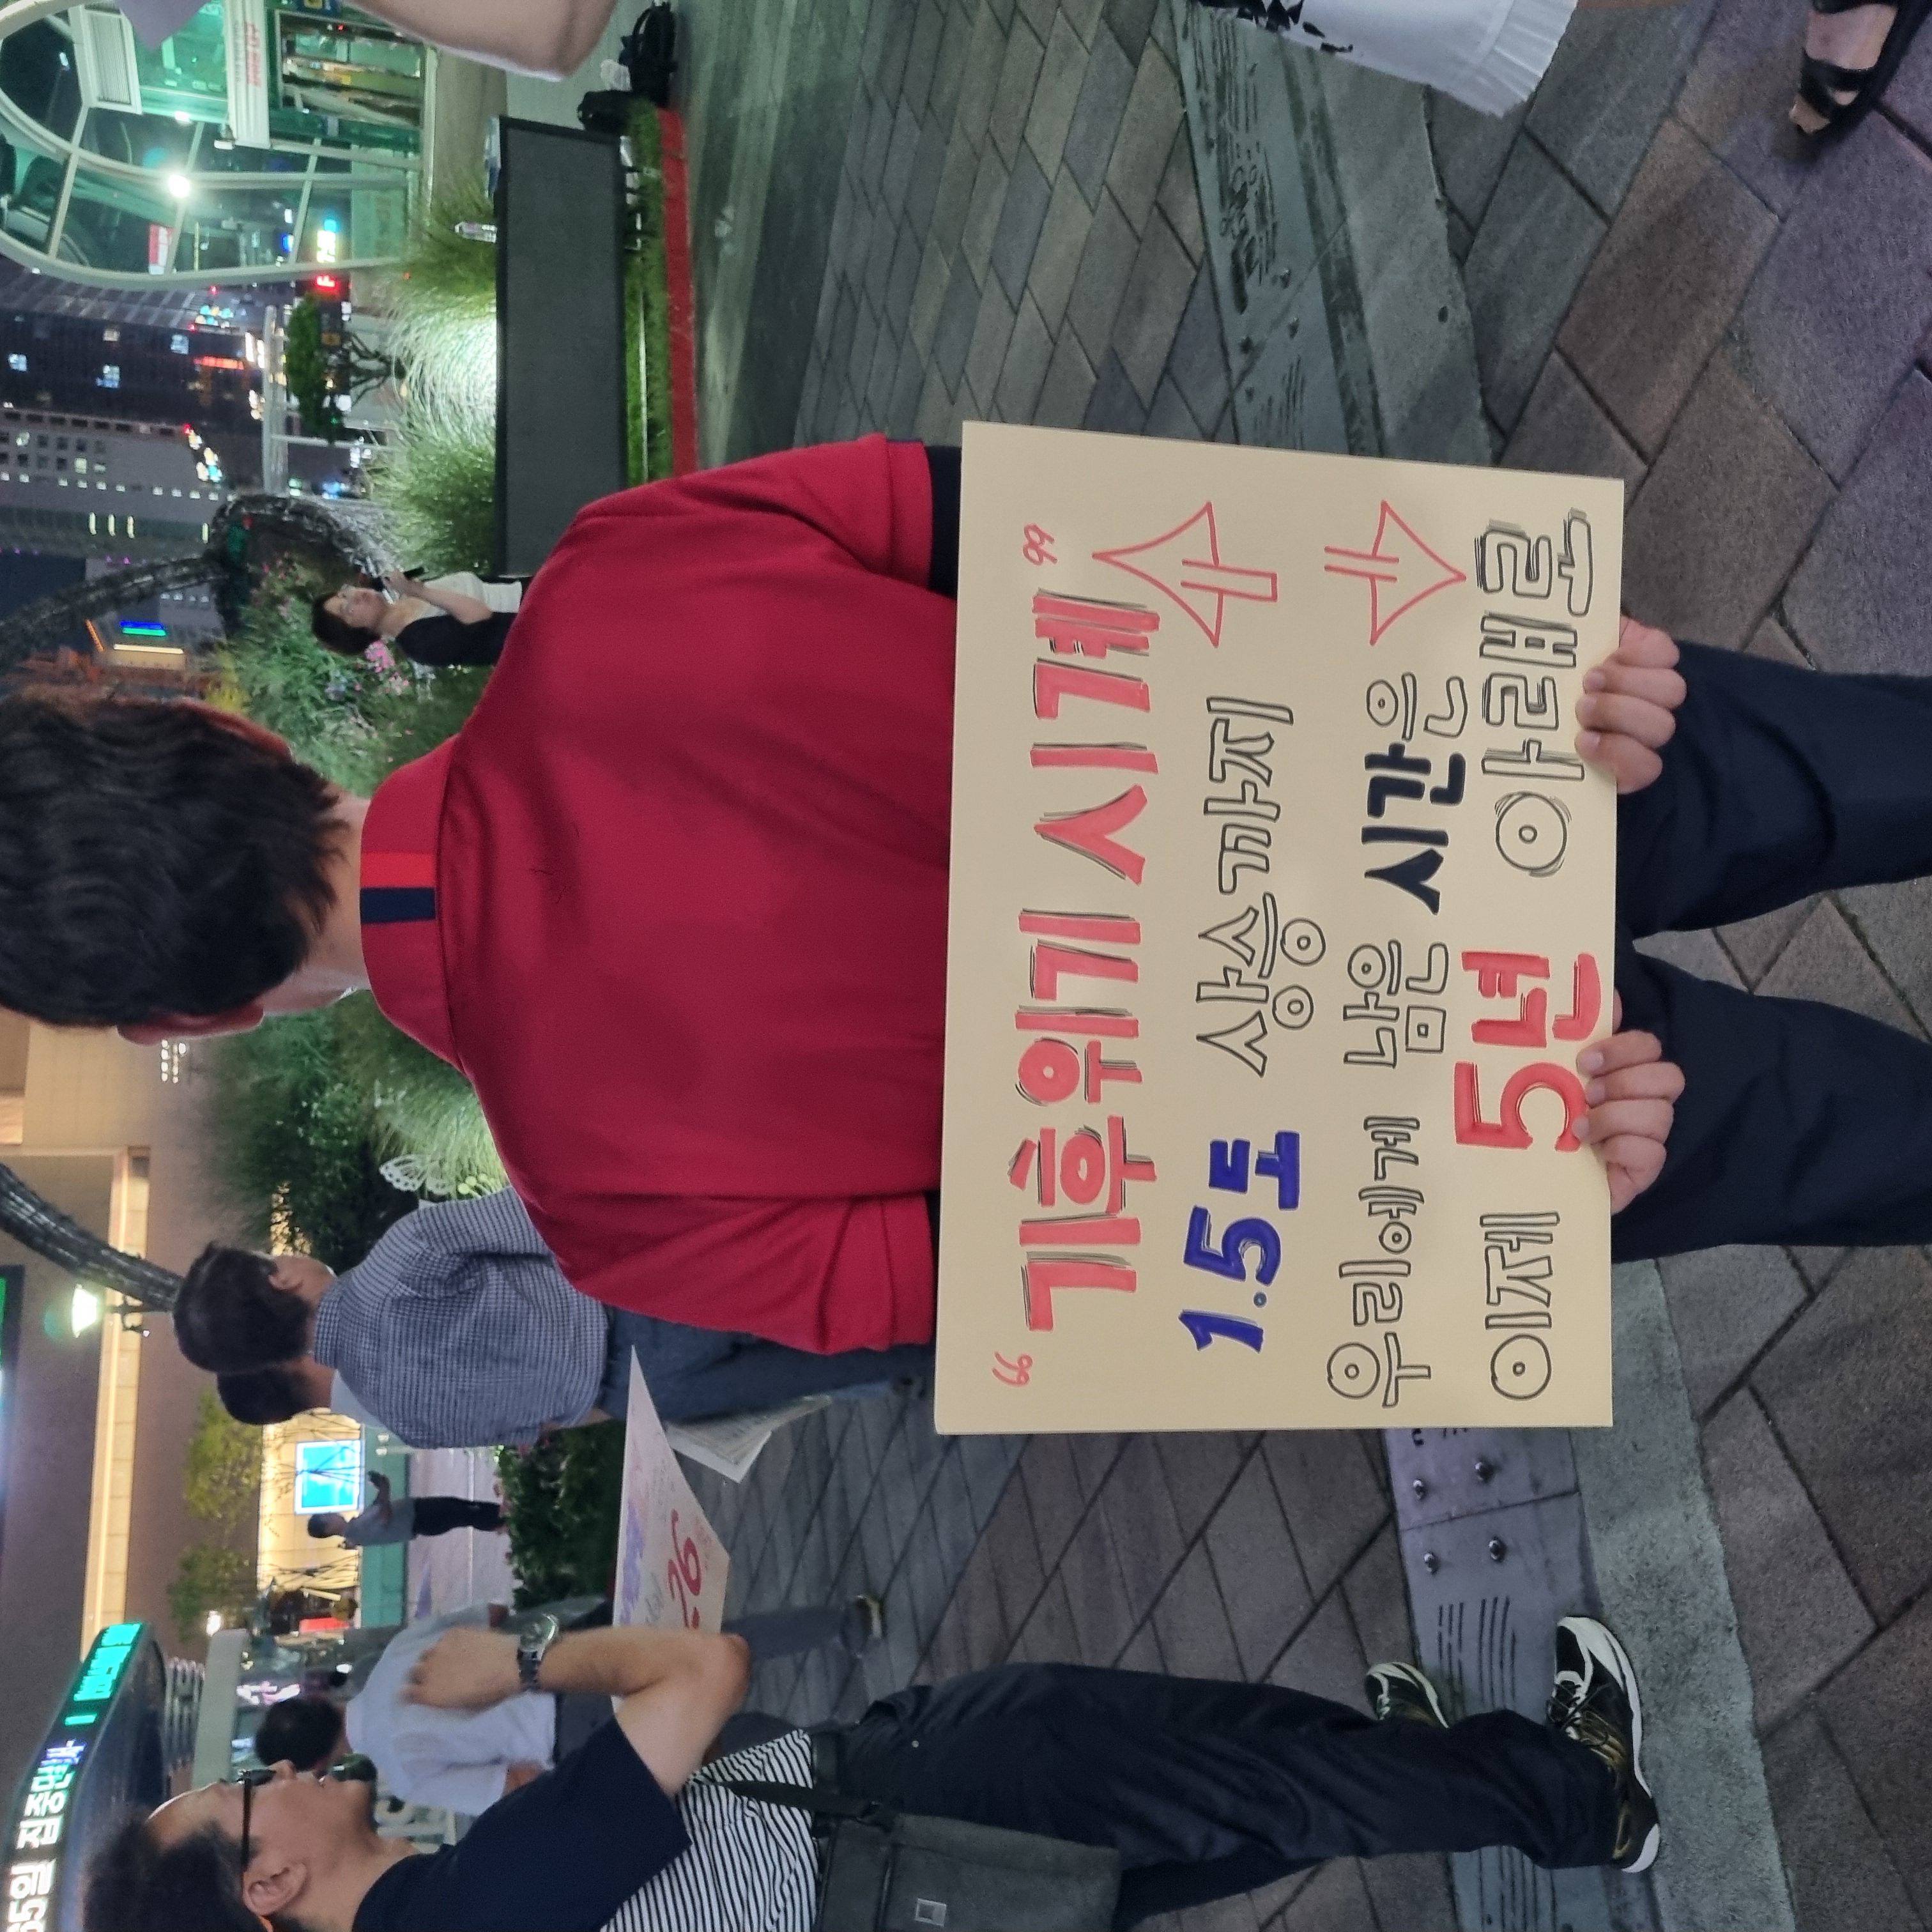 “기후위기 시계”
1.5도 상승까지
우리에게 남은 시간은
이제 5년 아래로
65일 집중만
26